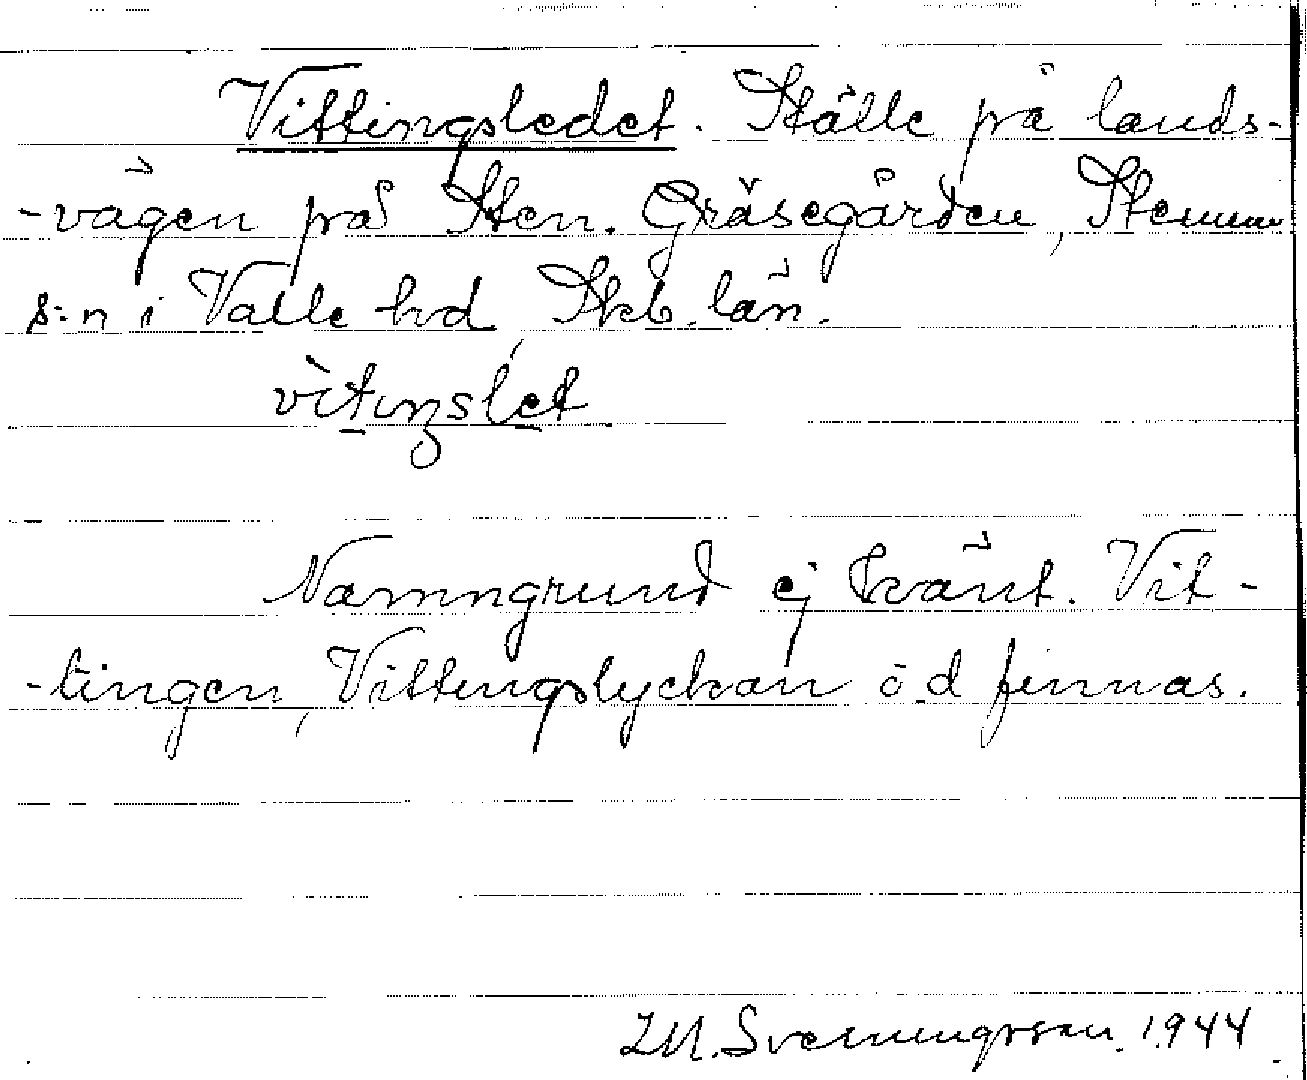 Vittingsledet. Ställe på lands-
-vägen på Sten. Gräsegården, Stenum
s:n i Valle hd Skb. län.
vìtıŋslét
Namngrund ej känt. Vit-
-tingen, Vittingslyckan o.d finnas.
I.M. Svenningsson. 1944